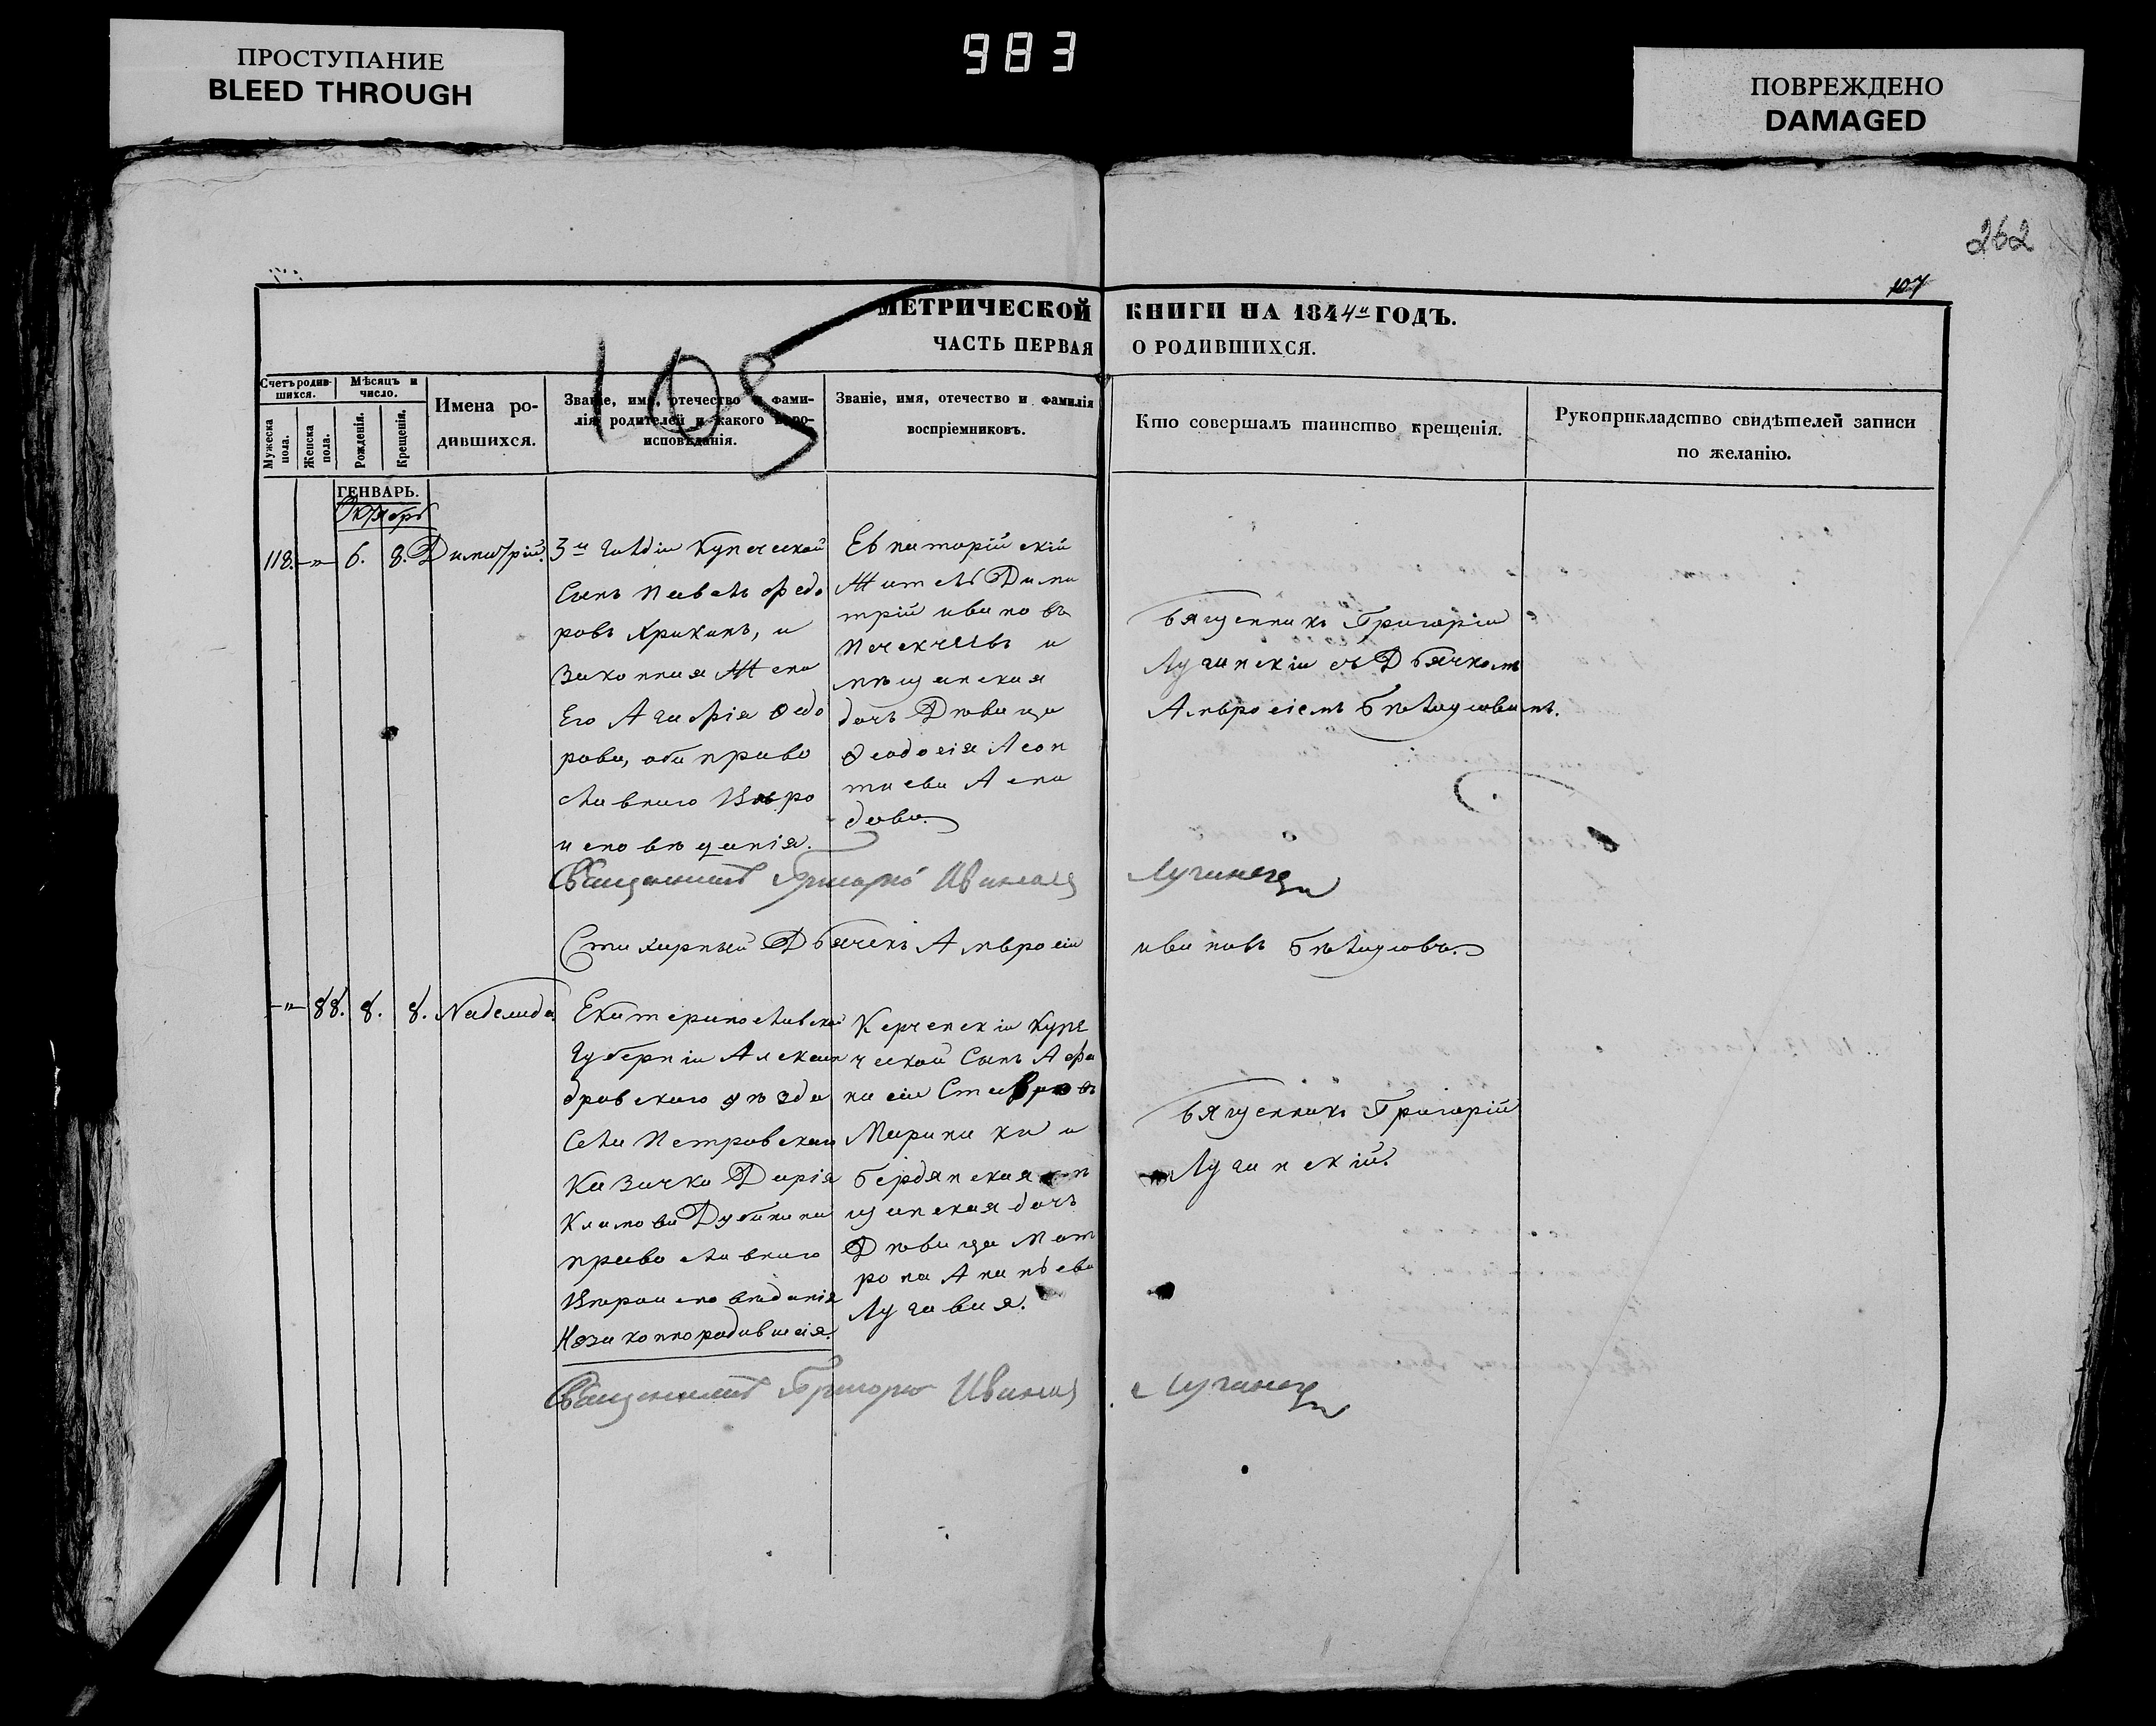 ПРОСТУПАНИЕ
BLEED THROUGH
983
ПОВРЕЖДЕНО
DAMAGED
262
107
МЕТРИЧЕСКОЙ КНИГИ НА 1844й ГОДЪ.
ЧАСТЬ ПЕРВАЯ О РОДИВШИХСЯ.
105
Счетъ родившихся.
Мужеска пола.
Женска пола.
Мѣсяцъ и число.
Рожденія.
Крещенія.
Имена родившихся.
Званіе, имя, отечество и фамилія родителей и какого вѣроисповѣданія.
Званіе, имя, отечество и фамилія воспріемниковъ.
Кто совершалъ таинство крещенія.
Рукоприкладство свидѣтелей записи по желанію.
ГЕНВАРЬ.
Октябрь
118. -"- 6. 8. Димитрій.
3й гилдіи Купеческой
Сынъ Павелъ Федо
ровъ Хрикинъ, и
Законная Жена
Его Агафія Ѳедо
рова, оба право
славнаго Вѣро
исповѣданія.
Евпаторійскій
Житель Дими
трій ивановъ
Печекчевъ и
мѣщанская
дочь Дѣвица
Ѳеодосія Леон
тиева
Священникъ Григорій
Лучинскій съ Дьячкомъ
Амвросіемъ Бѣлоусовымъ.
Священникъ Григорій Ивановъ Лучинскій
Стихарный Дьячекъ Амвросій ивановъ Бѣлоусовъ.
-"- 88. 8. 8. Надежда.
Екатеринославской
Губерніи Алексан
дровскаго уѣзда
Села Петровскаго
Казачка Дарія
Климова Дубинина
православнаго
Вѣроисповѣданія
Незаконнородившаяся.
Керченскій Купе
ческой Сынъ Афа
насій Ставровъ
Маринаки и
Бердянская мѣ
щанская дочь
Дѣвица Мат
рона Ананьева
Луговая.
Священникъ Григорій
Лучинскій.
Священникъ Григорій Ивановъ Лучинскій